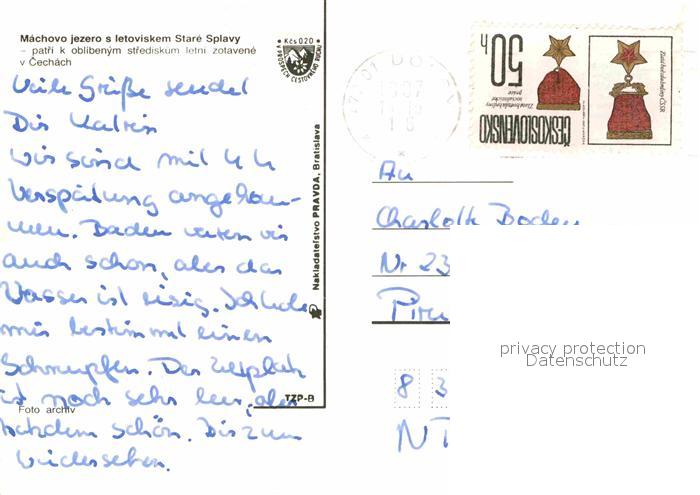 Máchovo jezero s letoviskem Staré Splavy
– patří k oblíbeným střediskům letní zotavené
v Čechách
Kčs 0,20
Viele Grüße sendet
Dir Katrin
Wir sind mit 4 h
Verspätung angekom-
men. Baden waren wir
auch schon, aber das
Wasser ist eisig. Ich habe
mir bestimmt einen
Schnupfen. Der Zeltplatz
ist noch sehr leer, aber
trotzdem schön. Bis zum
Wiedersehen.
Foto archiv
Nakladateľstvo PRAVDA, Bratislava
TZP-B
50 h
ČESKOSLOVENSKO
Zlatá hvězda hrdiny ČSSR
An
Charlotte Boden
Nr 23
Pir
8 3
privacy protection
Datenschutz